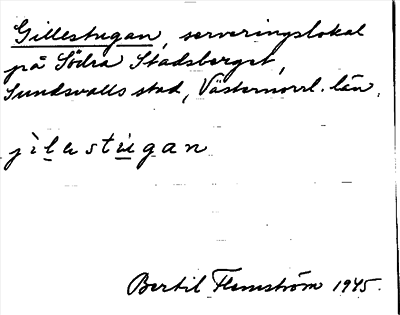 Gillestugan, serveringslokal
på Södra Stadsberget,
Sundsvalls stad, Västernorrl. län.
jìlestùgan
Bertil Flemström 1945.